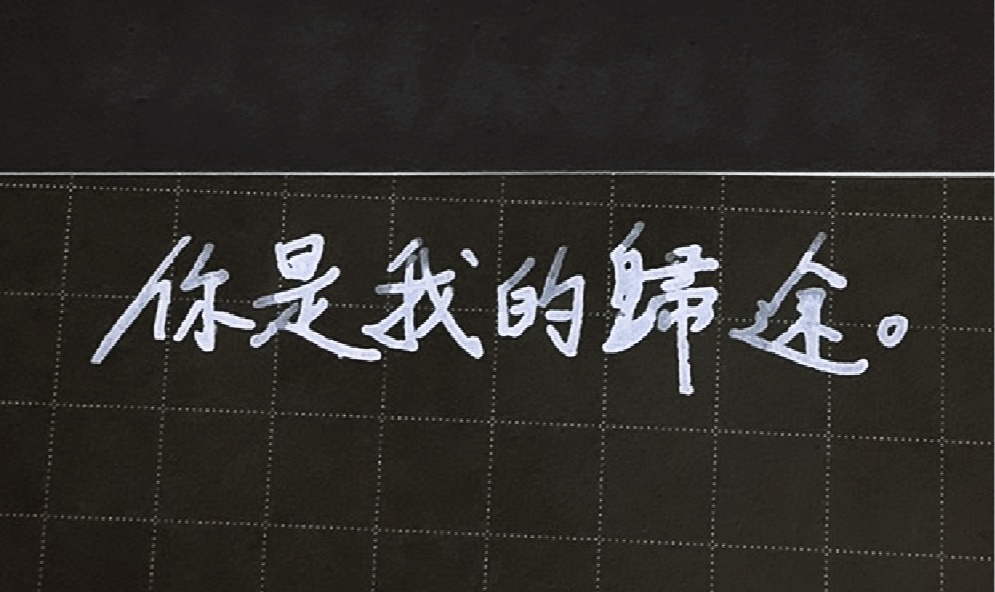 你是我的歸途。